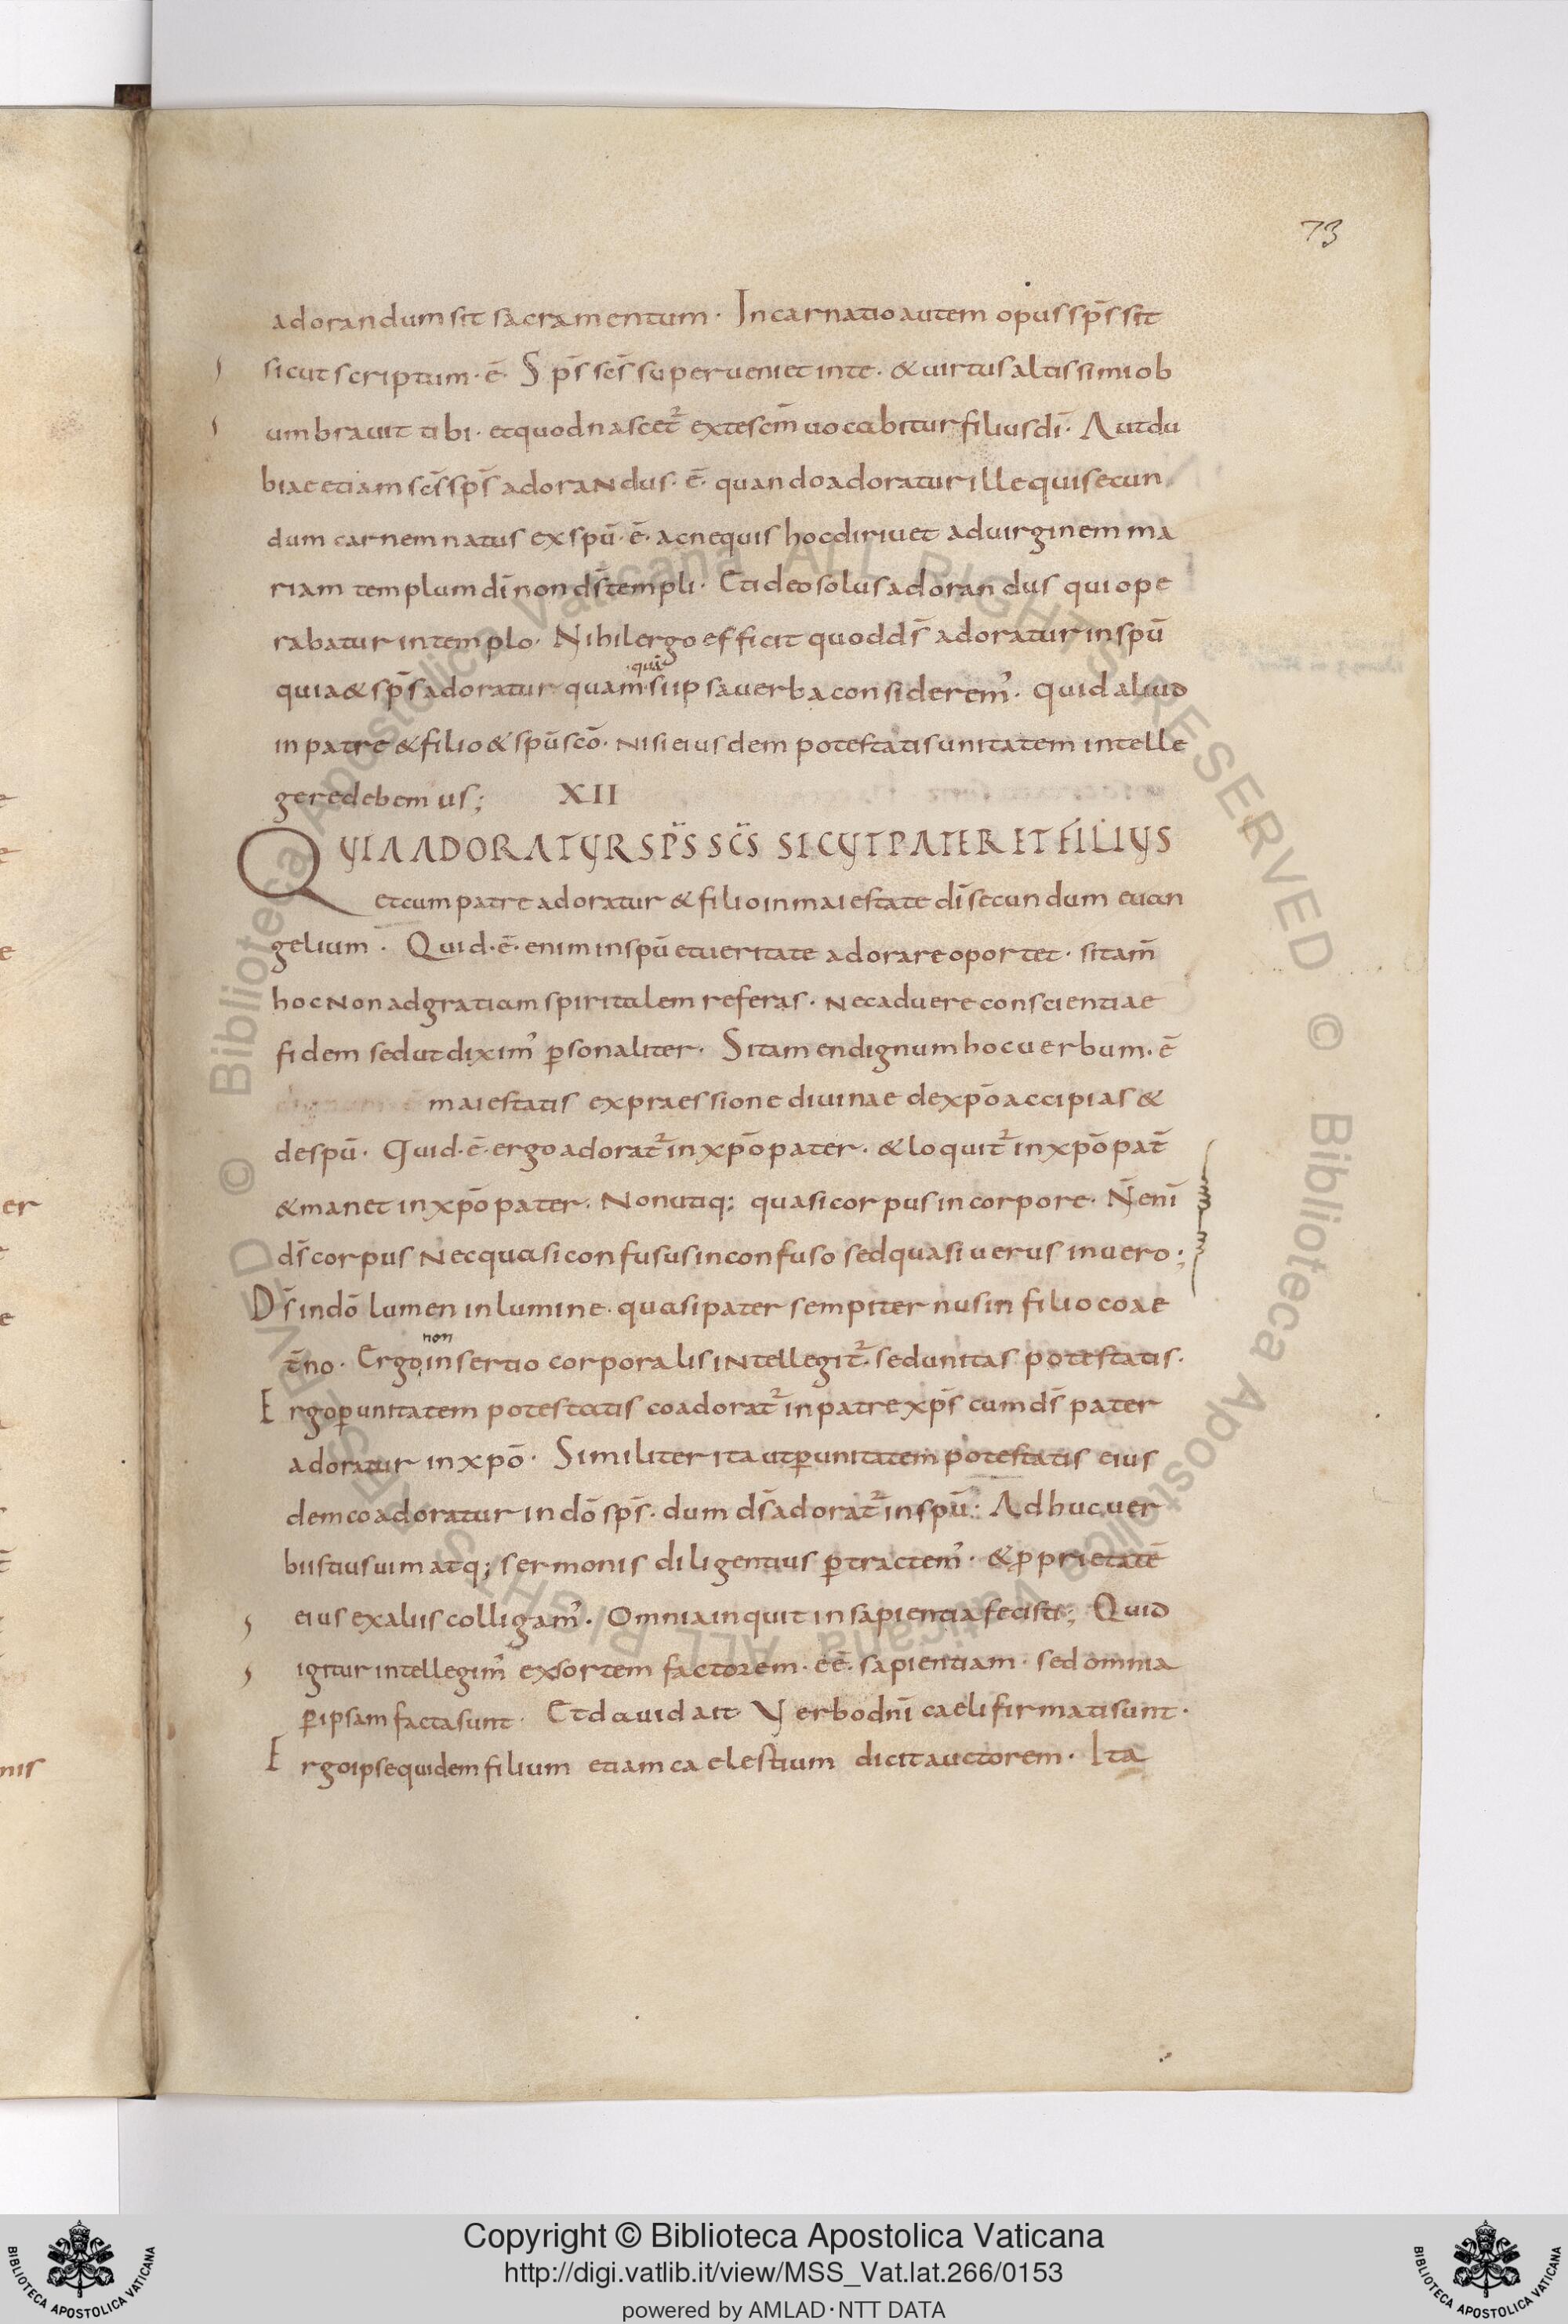 73
adorandum sit sacramentum · Incarnatio autem opus sp̄s sit
sicut scriptum · ē · Sp̄s sc̄s superueniet in te · & uirtus altissimi ob
umbrauit tibi · et quod nascet᷑ ex te scm̄ uocabitur filius dī · Aut du
biae etiam sc̄s sp̄s adorandus · ē · quando adoratur ille qui secun
dum carnem natus ex spū · ē · ac nequis hoc diriuet ad uirginem ma
riam templum dī non ds̄ templi · Et ideo solus adorandus qui ope
rabatur in templo · Nihil ergo efficit quod ds̄ adoratur in spū
·qui·
quia & sp̄s adoratur quam si ipsa uerba considerem᾿ · quid aliud
in patre & filio & spū scō · nisi eiusdem potestatis unitatem intelle
gere debemus; XII
QUIA ADORATUR SP̄S SC̄S SICUT PATER ET FILIUS
et cum patre adoratur & filio in maiestate dī secundum euan
gelium · Quid · ē · enim in spū et ueritate adorare oportet · si tam̄
hoc non ad gratiam spiritalem referas · nec ad uere conscientiae
fidem sed ut dixim᾿ p̄sonaliter · Si tamen dignum hoc uerbum · ē
maiestatis expraessione diuinae de xp̄o accipias &
de spū · Quid · ē · ergo adorat᷑ in xp̄o pater · & loquit᷑ in xp̄o pat̄
& manet in xp̄o pater · Non utiq; quasi corpus in corpore · N̄ enī
ds̄ corpus nec quasi confusus in confuso sed quasi uerus in uero ;
Ds̄ in dō lumen in lumine · quasi pater sempiternus in filio coae
non
t̄no · Ergo insertio corporalis intellegit᷑ · sed unitas potestatis ·
Ergo p̄ unitatem potestatis coadorat᷑ in patre xp̄s cum ds̄ pater
adoratur in xp̄o · Similiter ita ut p̄ unitatem potestatis eius
dem coadoratur in dō sp̄s · dum ds̄ adorat᷑ in spū · Adhuc uer
bi istius uim atq; sermonis diligentius p̄tractem᾿ · & p̄prietatē
eius ex aliis colligam᾿ · Omnia inquit in sapientia fecisti ; Quid
igitur intellegim᾿ exsortem factorem · eē · sapientiam · sed omnia
p̄ ipsam facta sunt · Et dauid ait · Verbo dn̄i caeli firmati sunt ·
Ergo ipse quidem filium etiam caelestium dicit auctorem · Ita
er
nis
© Biblioteca Apostolica Vaticana ALL RIGHTS RESERVED © Biblioteca Apostolica Vaticana ALL RIGHTS RESERVED
Copyright © Biblioteca Apostolica Vaticana
http://digi.vatlib.it/view/MSS_Vat.lat.266/0153
powered by AMLAD·NTT DATA
BIBLIOTECA APOSTOLICA VATICANA
BIBLIOTECA APOSTOLICA VATICANA